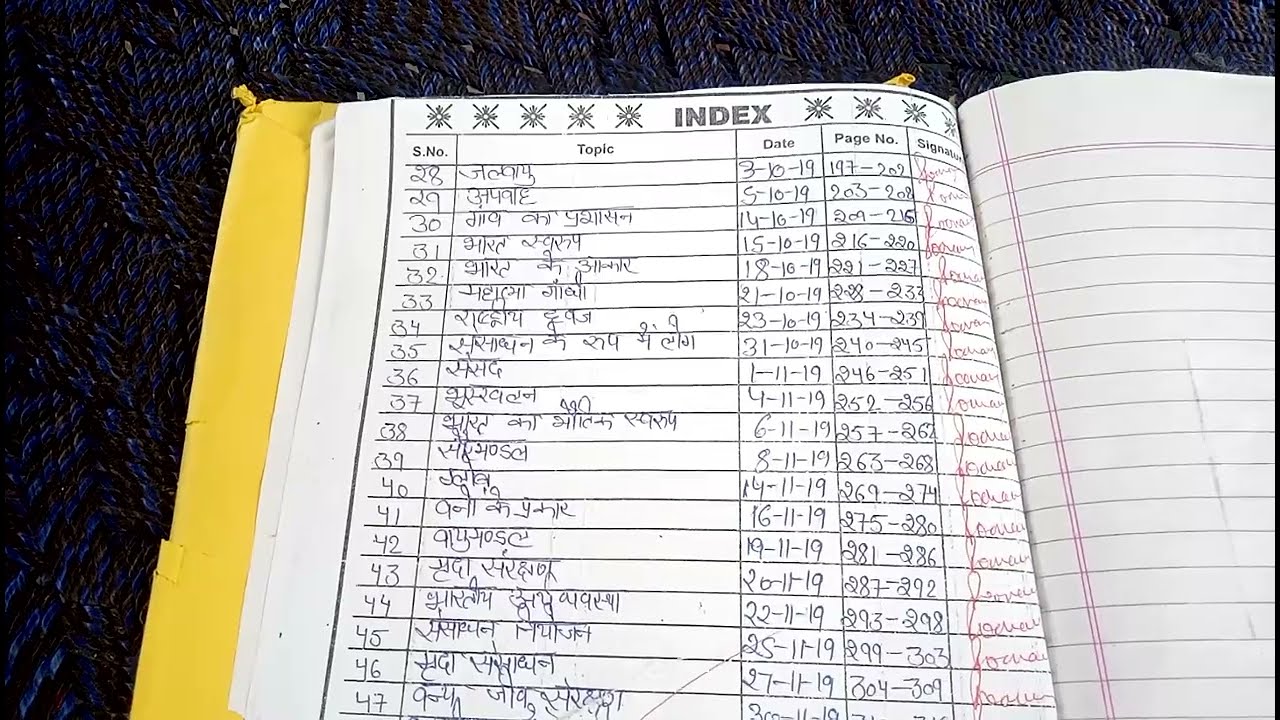 INDEX
S.No. Topic Date Page No. Signatur
28 जलवायु 3-10-19 197-202
29 अपवाह 5-10-19 203-208
30 गांव का प्रशासन 14-10-19 209-215
31 भारत स्वरूप 15-10-19 216-220
32 भारत के आकार 18-10-19 221-227
33 महात्मा गाँधी 21-10-19 228-233
34 राष्ट्रीय ध्वज 23-10-19 234-239
35 संसाधन के रूप में लोग 31-10-19 240-245
36 संसद 1-11-19 246-251
37 भूस्खलन 4-11-19 252-256
38 भारत का भौतिक स्वरूप 6-11-19 257-262
39 सौरमण्डल 8-11-19 263-268
40 ग्लोब 14-11-19 269-274
41 वनों के प्रकार 16-11-19 275-280
42 वायुमण्डल 19-11-19 281-286
43 मृदा संरक्षण 20-11-19 287-292
44 भारतीय अर्थव्यवस्था 22-11-19 293-298
45 संसाधन नियोजन 25-11-19 299-303
46 मृदा संसाधन 27-11-19 304-309
47 वन्य जीव संरक्षण
30-11-19